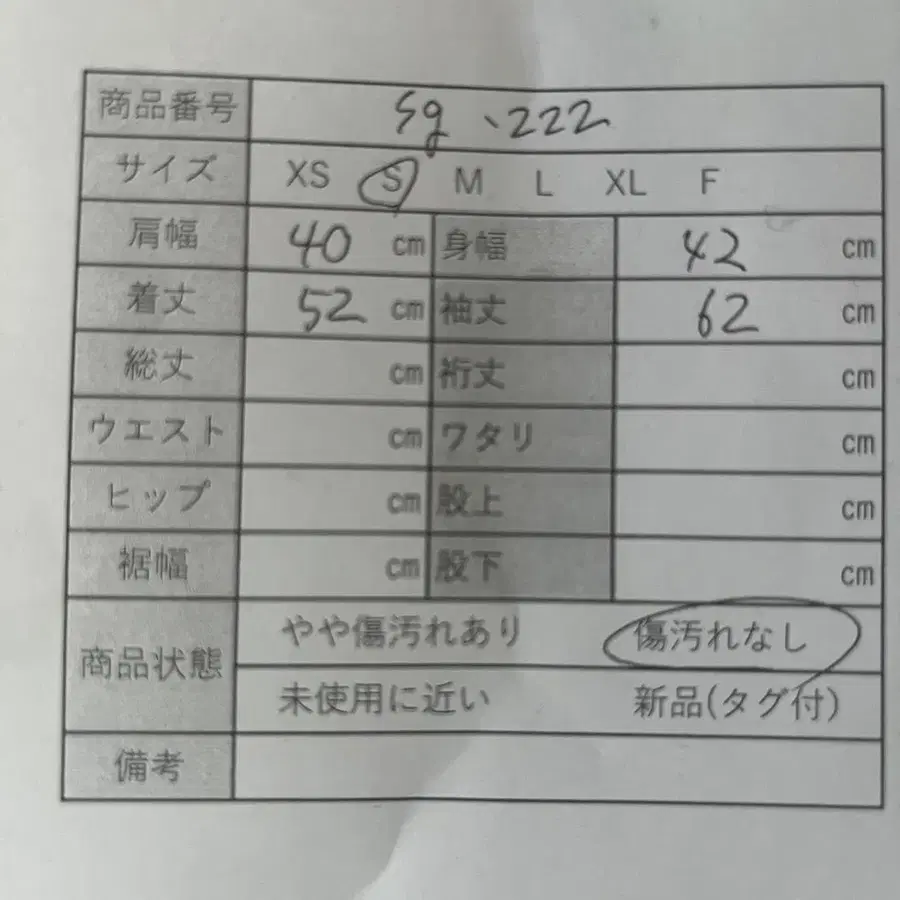 商品番号 Sg、222
サイズ XS S M L XL F
肩幅 40 cm 身幅 42 cm
着丈 52 cm 袖丈 62 cm
総丈 cm 裄丈 cm
ウエスト cm ワタリ cm
ヒップ cm 股上 cm
裾幅 cm 股下 cm
商品状態 やや傷汚れあり 傷汚れなし
未使用に近い 新品(タグ付)
備考